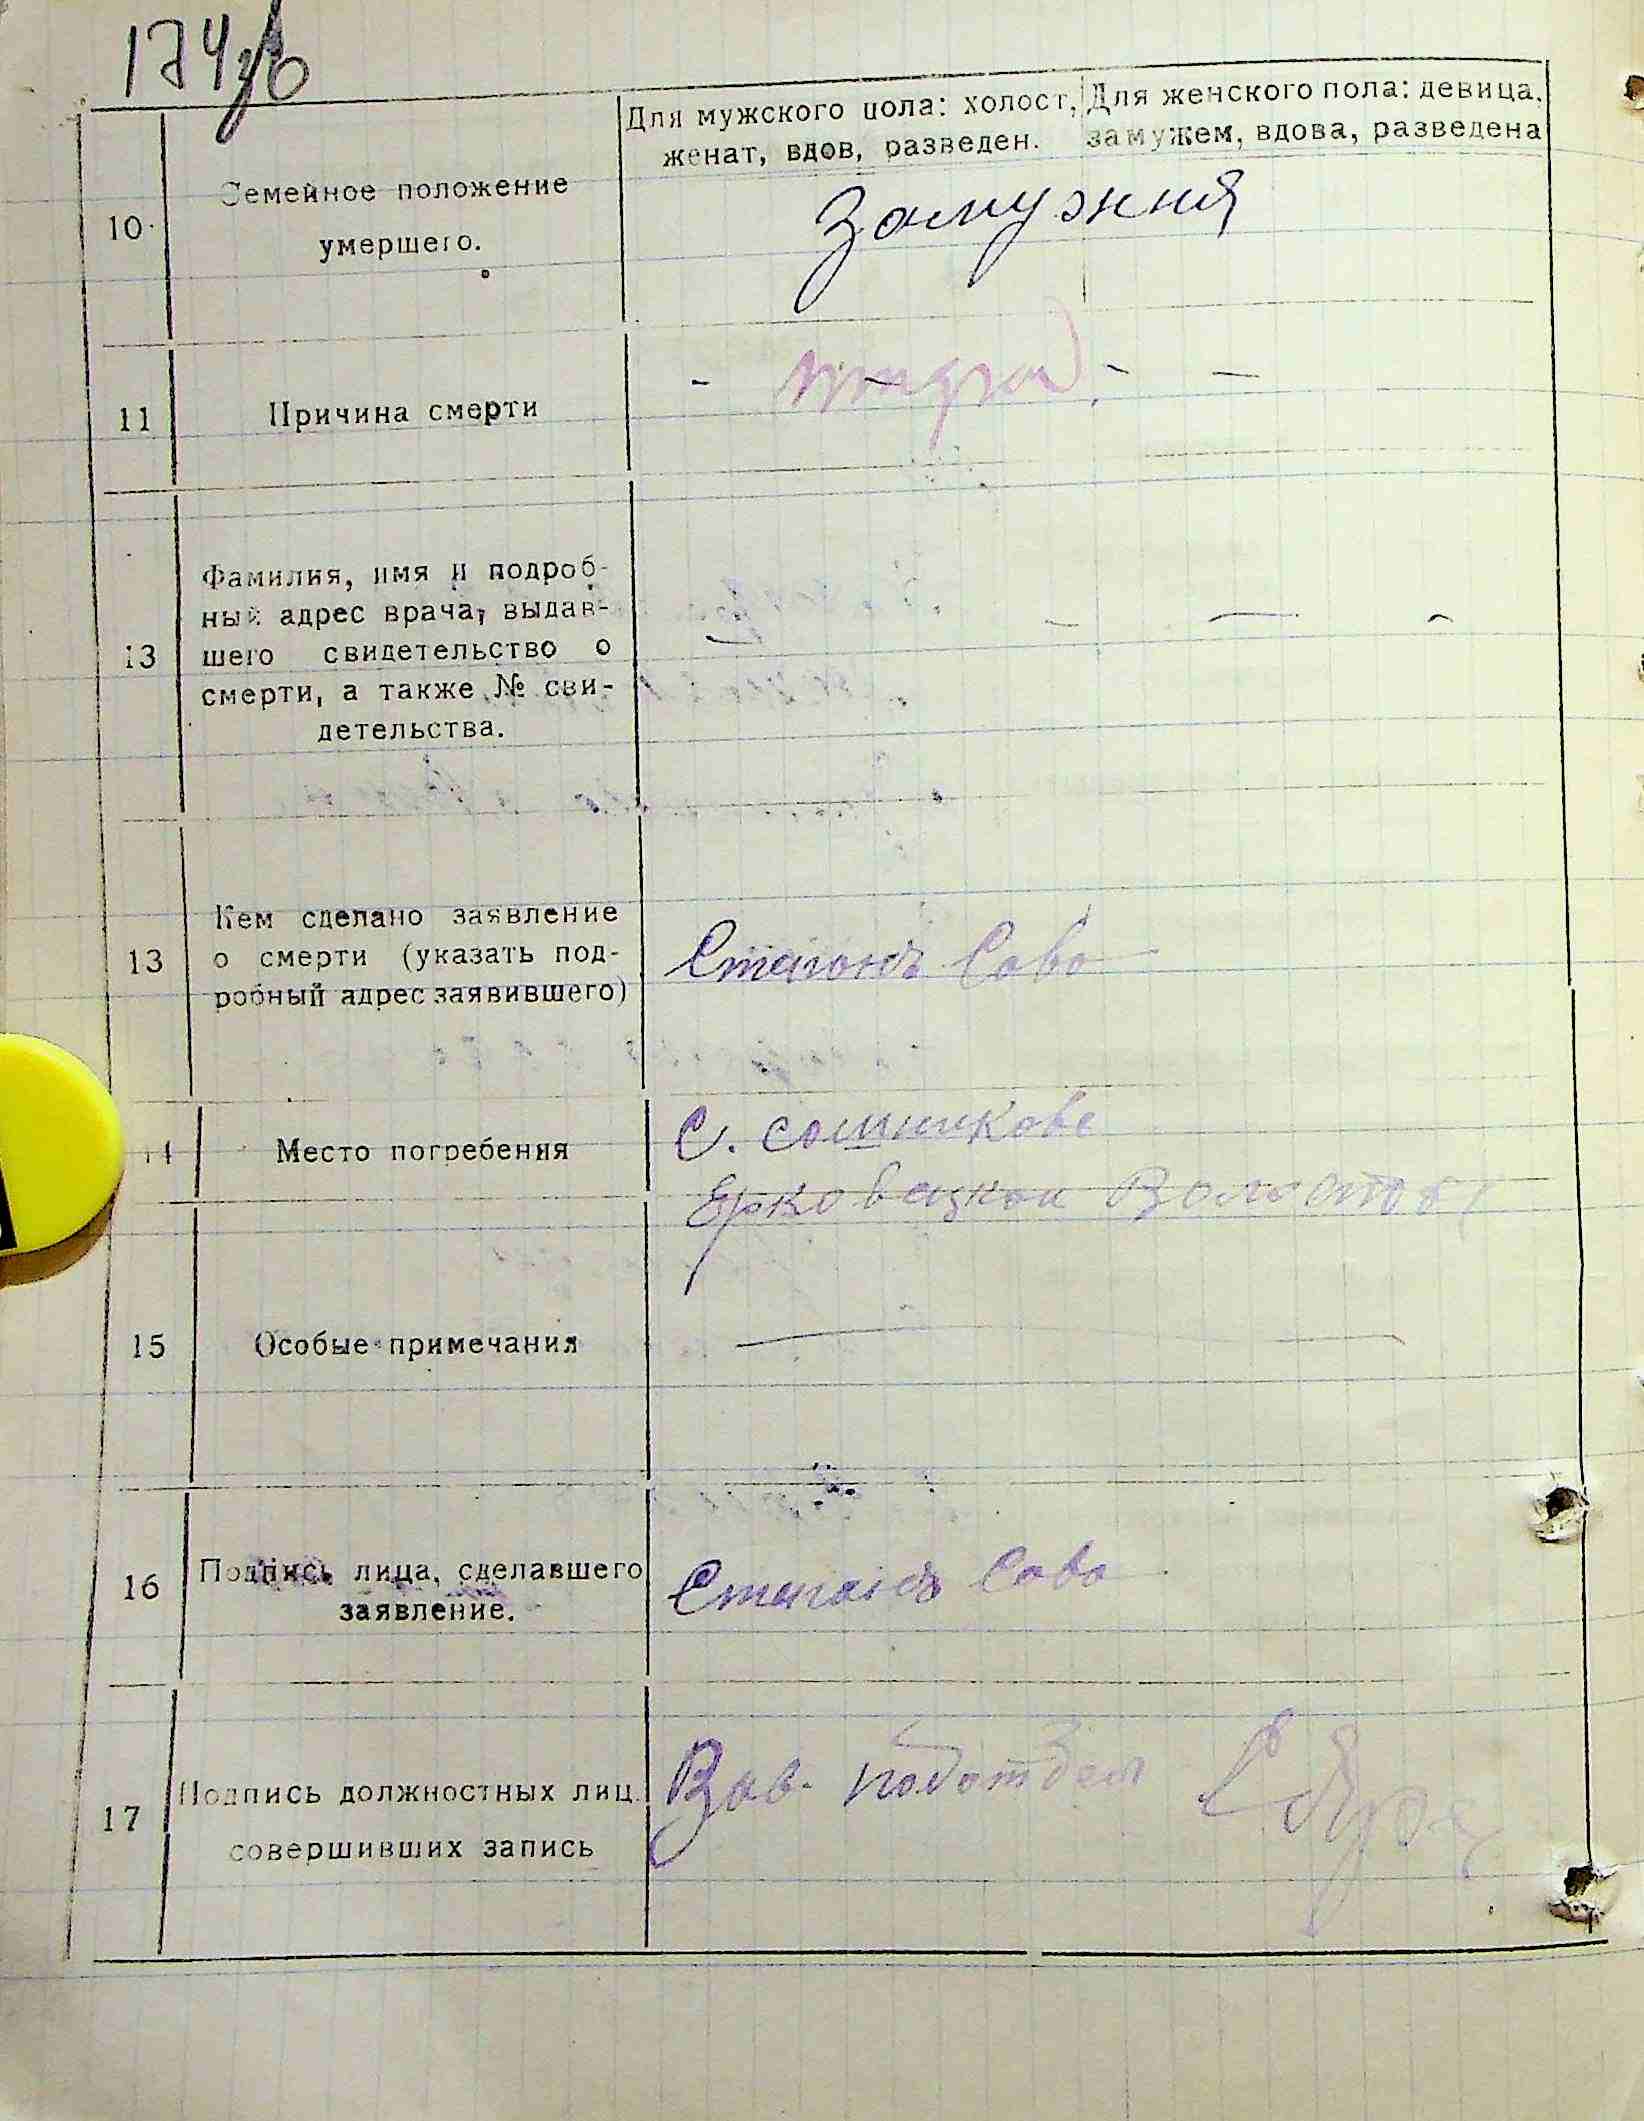 174 зв
Для мужского пола: холост, Для женского пола: девица,
женат, вдов, разведен. замужем, вдова, разведена
10 Семейное положение
умершего.
Замужняя
11 Причина смерти
13 Фамилия, имя и подроб-
ный адрес врача, выдав-
шего свидетельство о
смерти, а также № сви-
детельства.
13 Кем сделано заявление
о смерти (указать под-
робный адрес заявившего)
Сава
14 Место погребения
С. Сошникове
Ерковецкои Волости
15 Особые примечания
16 Подпись лица, сделавшего
заявление.
Сава
17 Подпись должностных лиц.
совершивших запись
Зав. подотдел